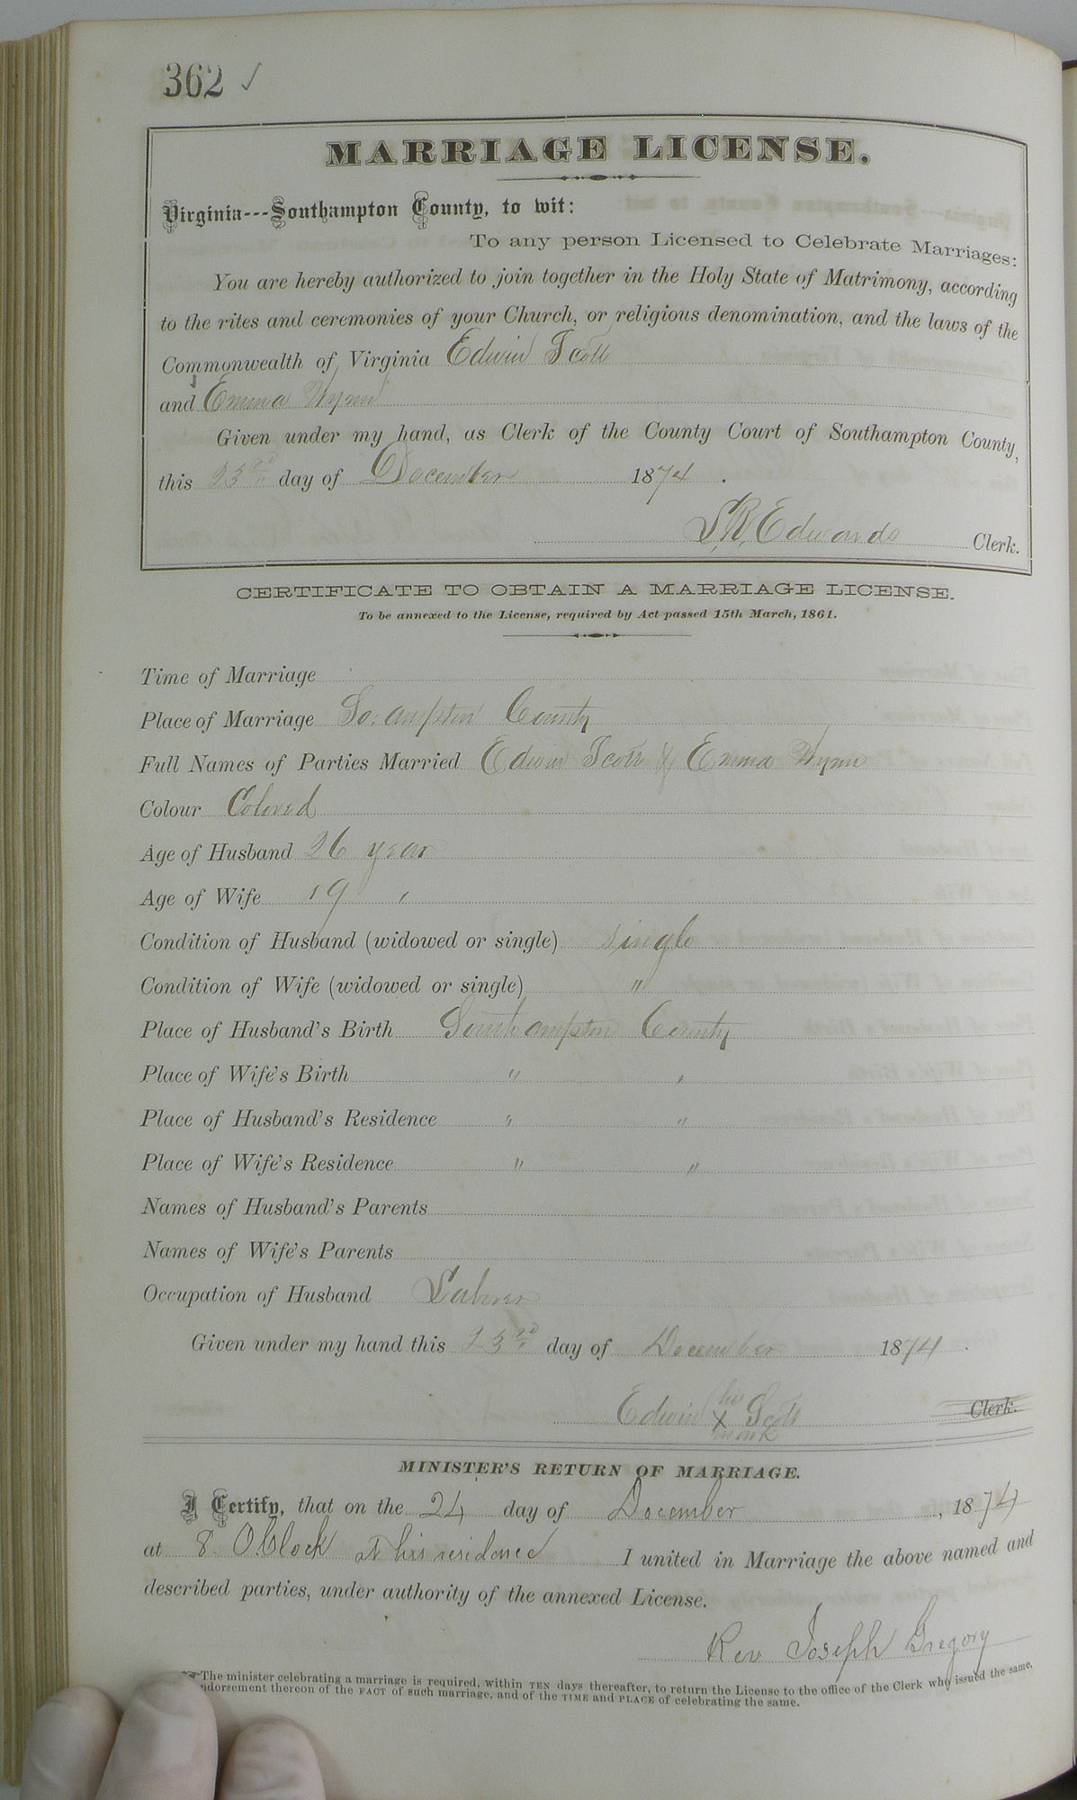 362 ✓
MARRIAGE LICENSE.
Virginia---Southampton County, to wit:
To any person Licensed to Celebrate Marriages:
You are hereby authorized to join together in the Holy State of Matrimony, according
to the rites and ceremonies of your Church, or religious denomination, and the laws of the
Commonwealth of Virginia Edwin Scott
and Emma Wynn
Given under my hand, as Clerk of the County Court of Southampton County,
this 23rd day of December 1874.
S. R. Edwards Clerk.
CERTIFICATE TO OBTAIN A MARRIAGE LICENSE.
To be annexed to the License, required by Act passed 15th March, 1861.
Time of Marriage
Place of Marriage So.ampton County
Full Names of Parties Married Edwin Scott & Emma Wynn
Colour Colored
Age of Husband 26 year
Age of Wife 19 "
Condition of Husband (widowed or single) single
Condition of Wife (widowed or single) "
Place of Husband's Birth Southampton County
Place of Wife's Birth " "
Place of Husband's Residence " "
Place of Wife's Residence " "
Names of Husband's Parents
Names of Wife's Parents
Occupation of Husband Labrer
Given under my hand this 23rd day of December 1874.
his
Edwin X Scott Clerk.
mark
MINISTER'S RETURN OF MARRIAGE.
I Certify, that on the 24 day of December, 1874
at 8 O Clock at his residence I united in Marriage the above named and
described parties, under authority of the annexed License.
Rev Joseph Gregory
The minister celebrating a marriage is required, within TEN days thereafter, to return the License to the office of the Clerk who issued the same,
ndorsement thereon of the FACT of such marriage, and of the TIME and PLACE of celebrating the same.